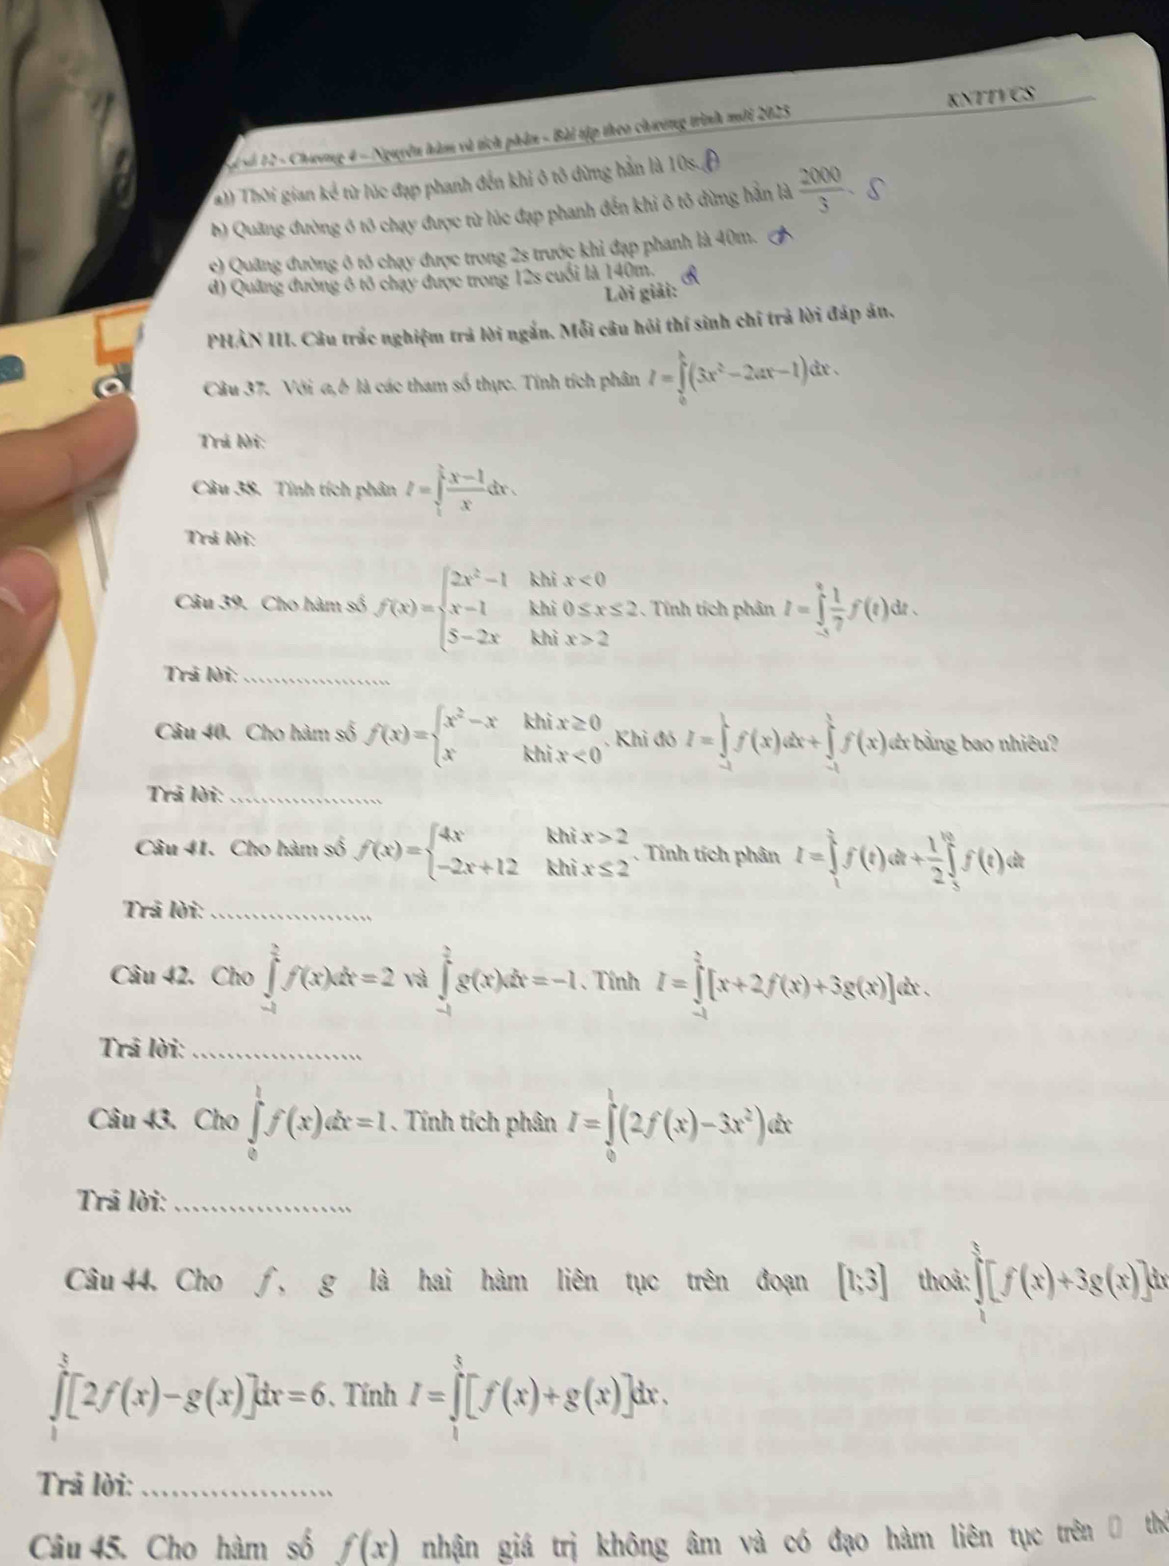 12 - Chương 4 - Nguyên hàm và tích phân - Bài tập theo chương trình mới 2025 KNTTVCS
a)) Thời gian kể từ lúc đạp phanh đến khi ô tô dừng hẳn là 10s. Đ
b) Quãng đường ô tô chạy được từ lúc đạp phanh đến khi ô tô dừng hẳn là 2000/3. S
c) Quãng đường ô tô chạy được trong 2s trước khi đạp phanh là 40m.
d) Quãng đường ô tô chạy được trong 12s cuối là 140m.
Lời giải:
PHẦN III. Câu trắc nghiệm trả lời ngắn. Mỗi câu hỏi thí sinh chỉ trả lời đáp án.
Câu 37. Với a,b là các tham số thực. Tính tích phân I = ∫_0^b (3x² − 2ax − 1)dx.
Trả lời:
Câu 38. Tính tích phân I = ∫_1^2 (x−1)/x dx.
Trả lời:
Câu 39. Cho hàm số f(x) = { 2x² − 1 khi x < 0; x − 1 khi 0 ≤ x ≤ 2; 5 − 2x khi x > 2 }. Tính tích phân I = ∫ 1/7 f(t)dt.
Trả lời: ....................
Câu 40. Cho hàm số f(x) = { x² − x khi x ≥ 0; x khi x < 0 }. Khi đó I = ∫_{-1}^1 f(x)dx + ∫_{-1}^3 f(x)dx bằng bao nhiêu?
Trả lời: ....................
Câu 41. Cho hàm số f(x) = { 4x khi x > 2; −2x + 12 khi x ≤ 2 }. Tính tích phân I = ∫_1 f(t)dt + 1/2 ∫_5^{10} f(t)dt
Trả lời: ....................
Câu 42. Cho ∫_{-1}^2 f(x)dx = 2 và ∫_{-1}^2 g(x)dx = −1. Tính I = ∫_{-1}^2 [x + 2f(x) + 3g(x)]dx.
Trả lời: ....................
Câu 43. Cho ∫_0^1 f(x)dx = 1. Tính tích phân I = ∫_0^1 (2f(x) − 3x²)dx
Trả lời: ....................
Câu 44. Cho f, g là hai hàm liên tục trên đoạn [1;3] thoả: ∫_1^3 [f(x) + 3g(x)]dx
∫_1^3 [2f(x) − g(x)]dx = 6. Tính I = ∫_1^3 [f(x) + g(x)]dx.
Trả lời: ....................
Câu 45. Cho hàm số f(x) nhận giá trị không âm và có đạo hàm liên tục trên